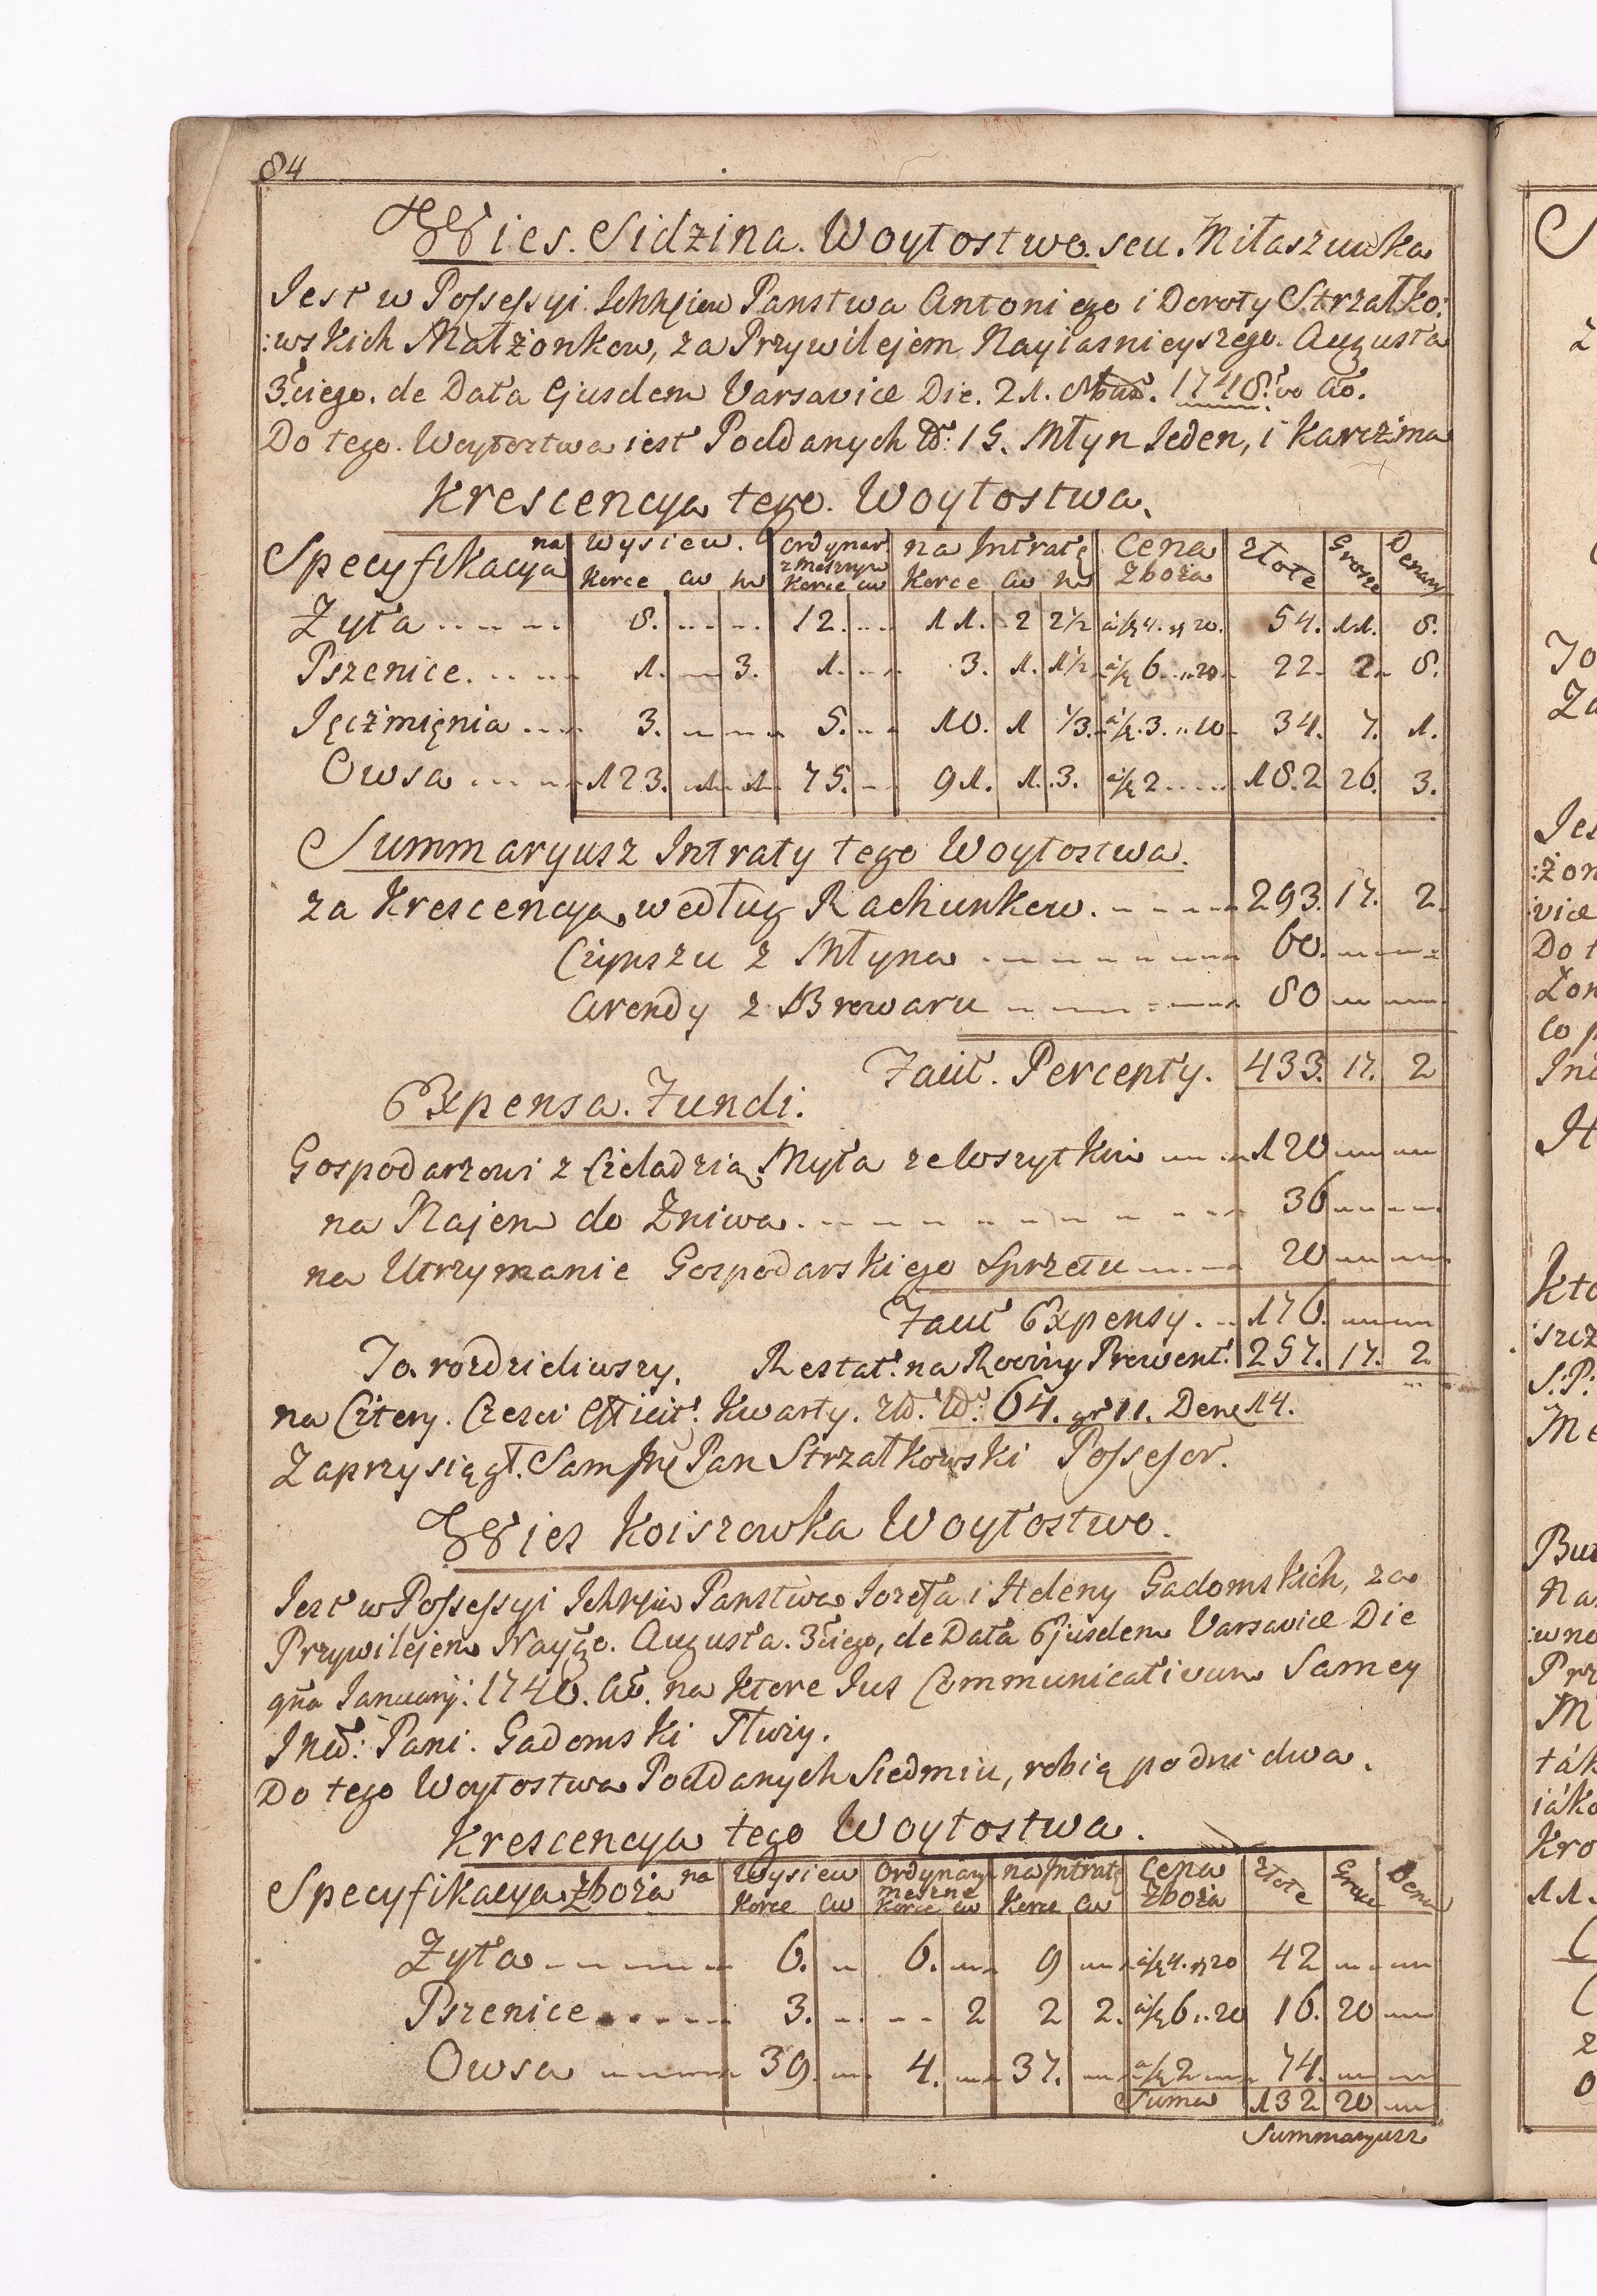 84
Wies. Sidzina. Woytostwo. seu. Miłaszuwka
Jest w Possessyi Ichmciow Panstwa Antoniego i Doroty Strzałko:
:wskich Małżonkow, za Przywilejem Nayiasnieyszego. Augusta
3ciego. de Data Ejusdem Varsaviæ Die. 21. 1748. vo Ao.
Do tego. Woytostwa iest Poddanych No: 15. Młyn Jeden, i Karczma
Krescencya tego. Woytostwa.
Specyfikacya na wysiew. Ordynar. z Mesznym na Intratę Cena Zboża Złote Grosze Denary
Korce Cw m Korce Cw Korce Cw m
Zyta 8. 12. 11. 2 2½ a f 4. g 20. 54. 11. 8.
Pszenice 1. 3. 1. 3. 1. 1½ a f 6. 20 22. 2. 8.
Jęczmięnia 3. 5. 10. 1 1/3. a f 3. 10 34. 7. 1.
Owsa 123. 1. 1. 75. 91. 1. 3. a f 2 182 26. 3.
Summaryusz Intraty tego Woytostwa.
za Krescencyą według Rachunkow. 293. 17. 2.
Czynszu z Młyna 60.
Arendy z Browaru 80
Facit. Percepty. 433. 17. 2
Expensa. Fundi.
Gospodarzowi z Czeladzią Myta ze Wszytkim 120
na Najem do Żniwa. 36
na Utrzymanie Gospodarskiego Sprzętu 20
Facit Expensy. 176.
To. rozdzieliwszy. Restat. na Roczny Prowent. 257. 17. 2
na Cztery. Czesci Efficit. Kwarty. Zł. No: 64. gr 11. Den 14.
Zaprzysiągł. Sam Jmć Pan Strzałkowski Possessor.
Wies Koiszowka Woytostwo.
Jest w Possessyi Ichmciow Panstwa Jozefa i Heleny Gadomskich, za
Przywilejem Nayzgo. Augusta. 3ciego, de Data Ejusdem Varsaviæ Die
9na Januarij: 1748. Ao. na ktore Jus Communicativum Samey
Pani. Gadomski służy.
Do tego Woytostwa Poddanych Siedmiu, robią po dni dwa.
Krescencya tego Woytostwa.
Specyfikacya Zboża na Wysiew Ordynaryą meszne na Intratę Cena Zboża Złote Grosze Dena
Korce Cw Korce Cw Korce Cw
Zyta 6. 6. 9 a f 4. g 20 42
Pszenice 3. 2 2 2. a f 6. 20 16. 20
Owsa 39. 4. 37. a f 2 74.
Suma 132 20
Summaryusz